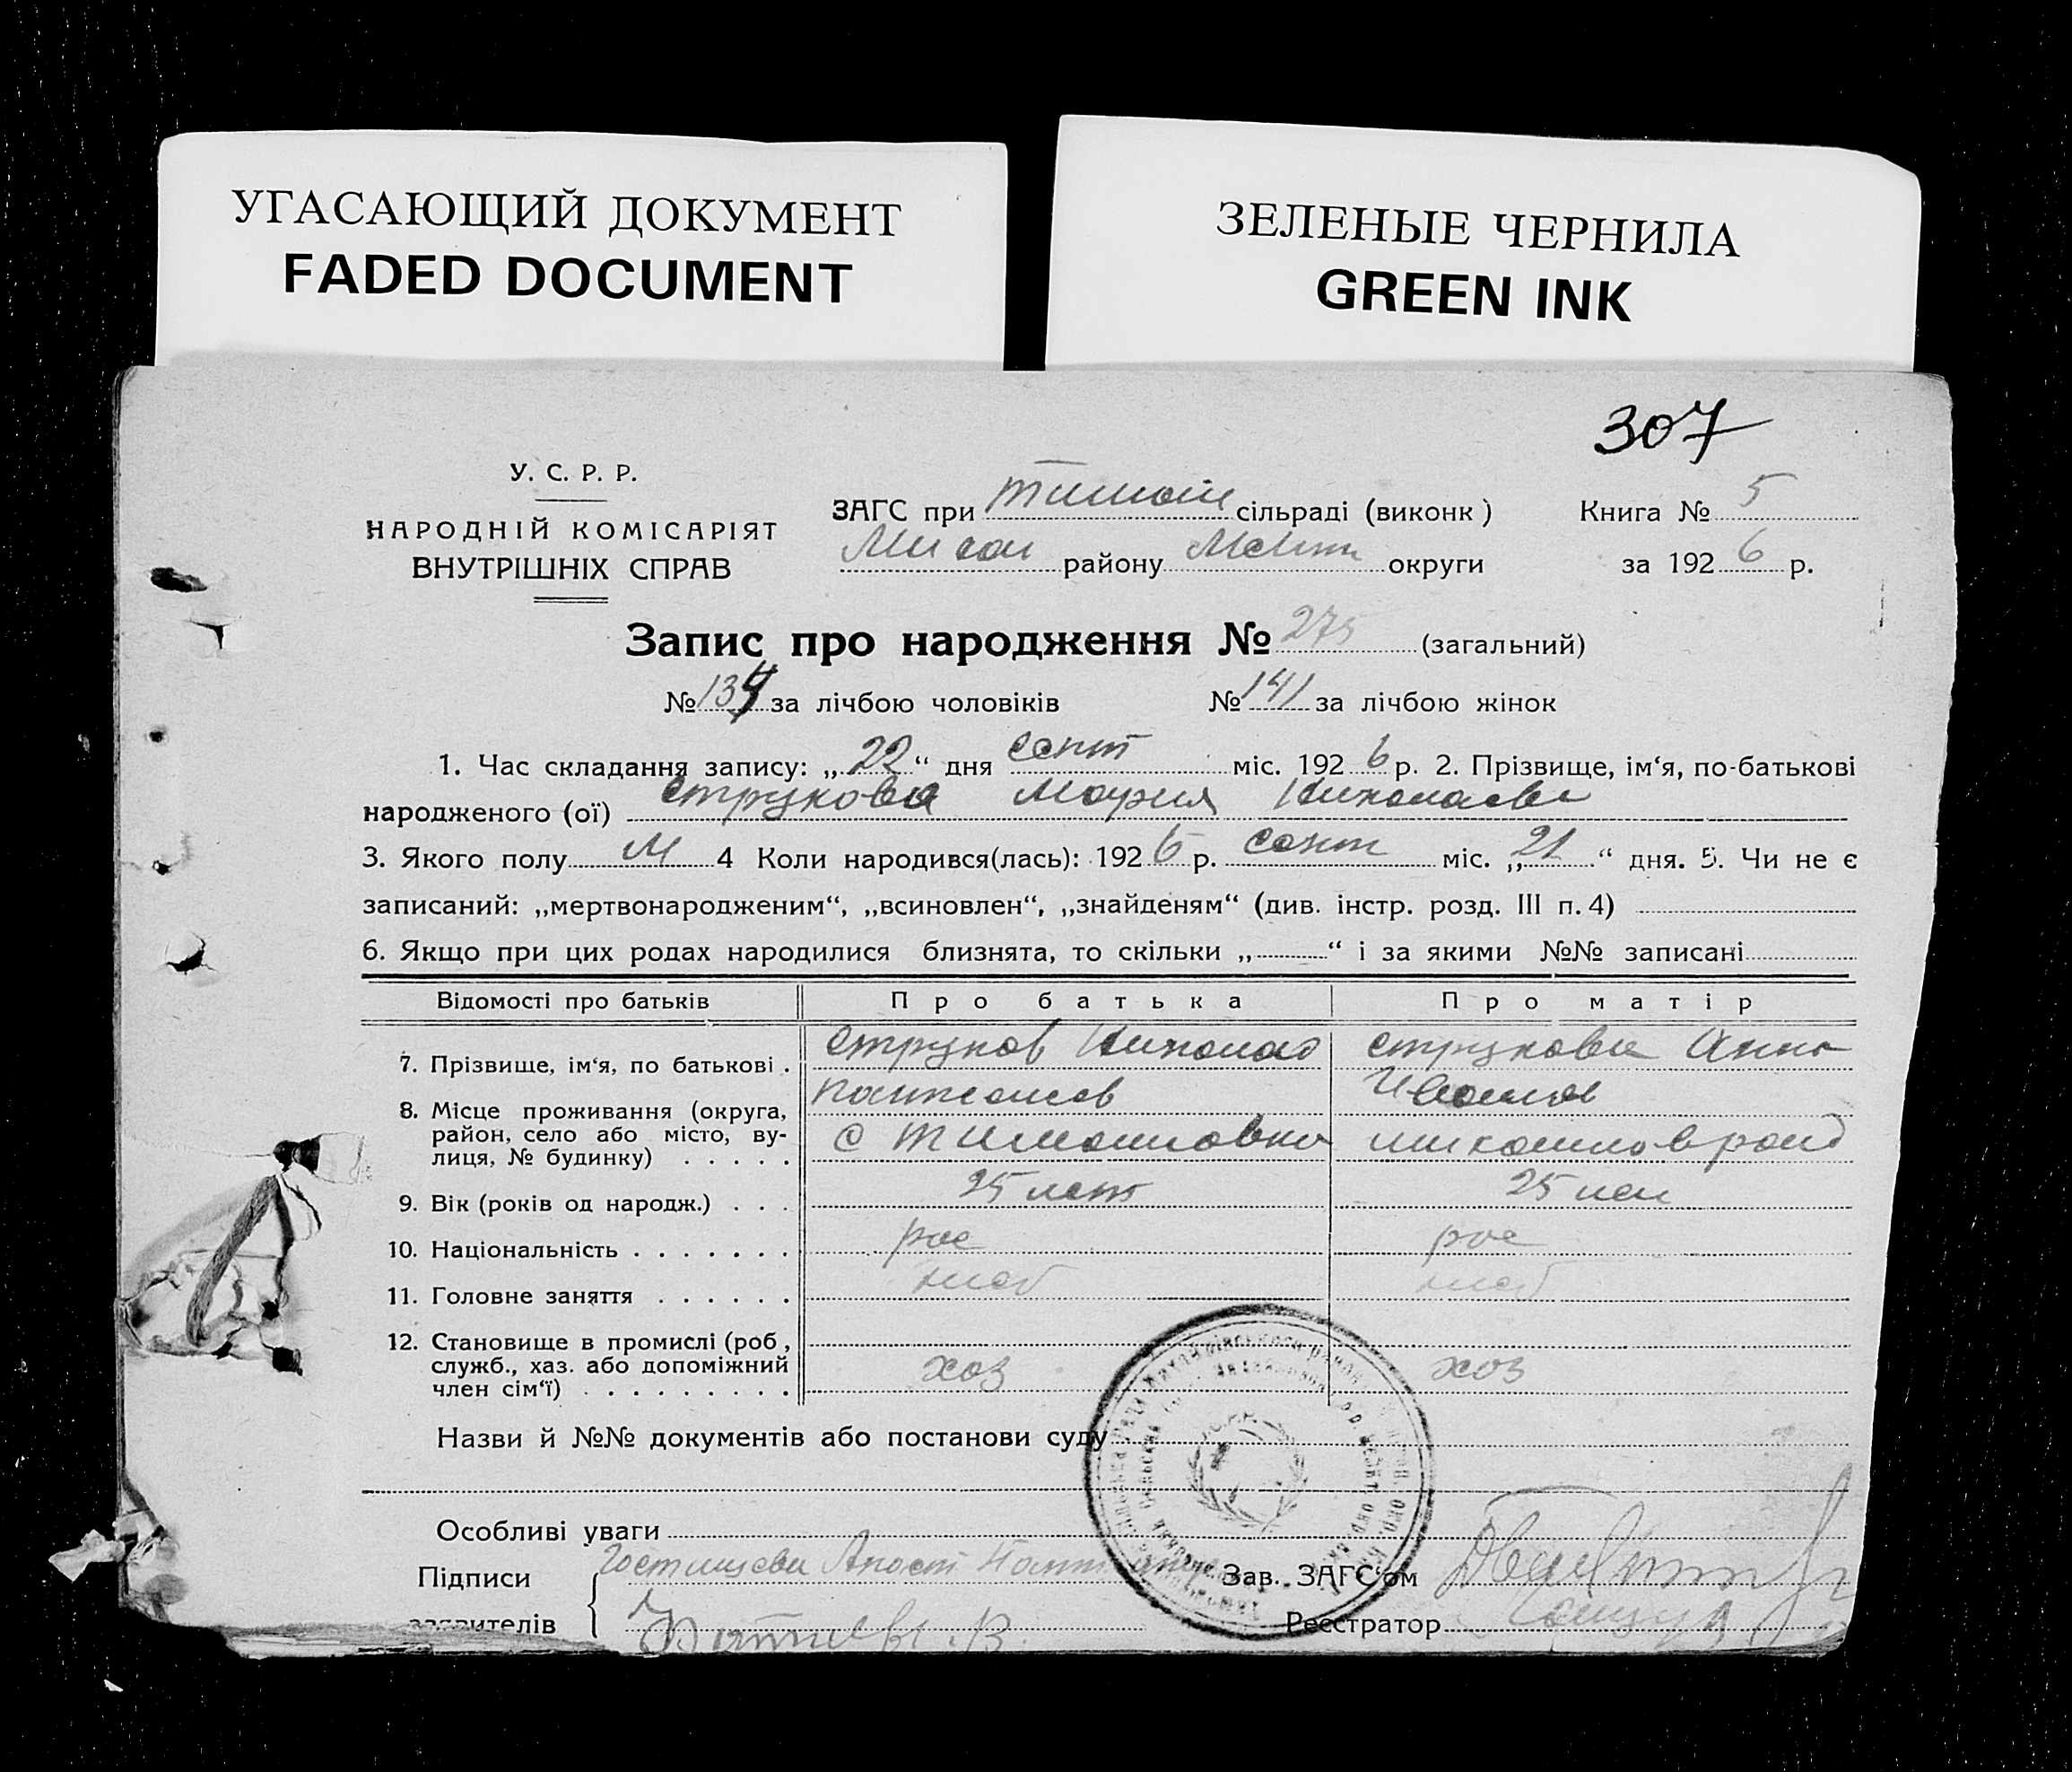 УГАСАЮЩИЙ ДОКУМЕНТ
FADED DOCUMENT
ЗЕЛЕНЫЕ ЧЕРНИЛА
GREEN INK
307
У. С. Р. Р.
НАРОДНІЙ КОМІСАРІЯТ
ВНУТРІШНІХ СПРАВ
ЗАГС при Тимош сільраді (виконк)
Михай району Меліт округи
Книга № 5
за 1926 р.
Запис про народження № 275 (загальний)
№ 134 за лічбою чоловіків № 141 за лічбою жінок
1. Час складання запису: „22“ дня сент міс. 1926 р. 2. Прізвище, ім‘я, по-батькові
народженого (ої) Струкова Мария Николаевн
3. Якого полу М 4 Коли народився(лась): 1926 р. сент міс. „21“ дня. 5. Чи не є
записаний: „мертвонародженим“, „всиновлен“, „знайденям“ (див. інстр. розд. III п. 4)
6. Якщо при цих родах народилися близнята, то скільки „ “ і за якими №№ записані
Відомості про батьків Про батька Про матір
7. Прізвище, ім‘я, по батькові . Струков Николай Струкова Анна
Иванов
8. Місце проживання (округа,
район, село або місто, ву-
лиця, № будинку) . . . . . с Тимошовка
9. Вік (років од народж.) . . . 25 лет 25 лет
10. Національність . . . . . . . рос рос
11. Головне заняття . . . . . . хлеб хлеб
12. Становище в промислі (роб,
служб., хаз. або допоміжний
член сім‘ї) . . . . . . . . . хоз хоз
Назви й №№ документів або постанови суду
Особливі уваги
Підписи
заявителів
Зав. ЗАГС‘ом
Реєстратор